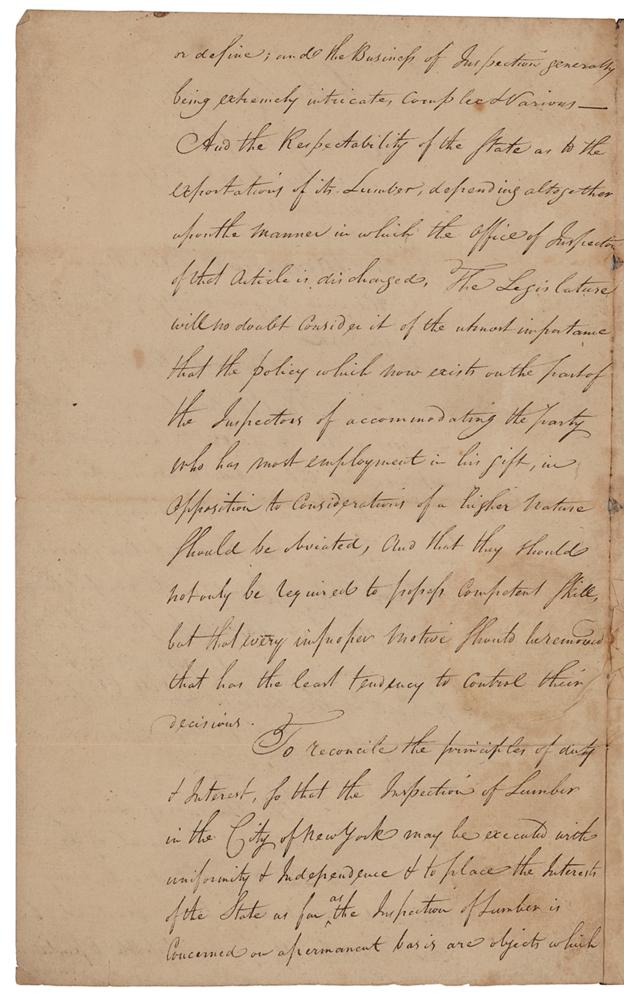 or define; and the Business of Inspection generally
being extremely intricate, complex & Various —
And the Respectability of the State as to the
exportations of its Lumber, depending altogether
upon the manner in which the Office of Inspector
of that Article is discharged, The Legislature
will no doubt Consider it of the utmost importance
that the policy which now exists on the part of
the Inspectors of accommodating the party
who has most employment in his gift, in
Opposition to Considerations of a higher Nature
Should be obviated, And that they should
not only be required to possess Competent Skill,
but that every improper motive should be removed
that has the least tendency to Control their
decisions.
To reconcile the principles of duty
& Interest, so that the Inspection of Lumber
in the City of New York may be executed with
uniformity & Independence & to place the Interests
of the State as far as the Inspection of Lumber is
Concerned on a permanent basis are objects which